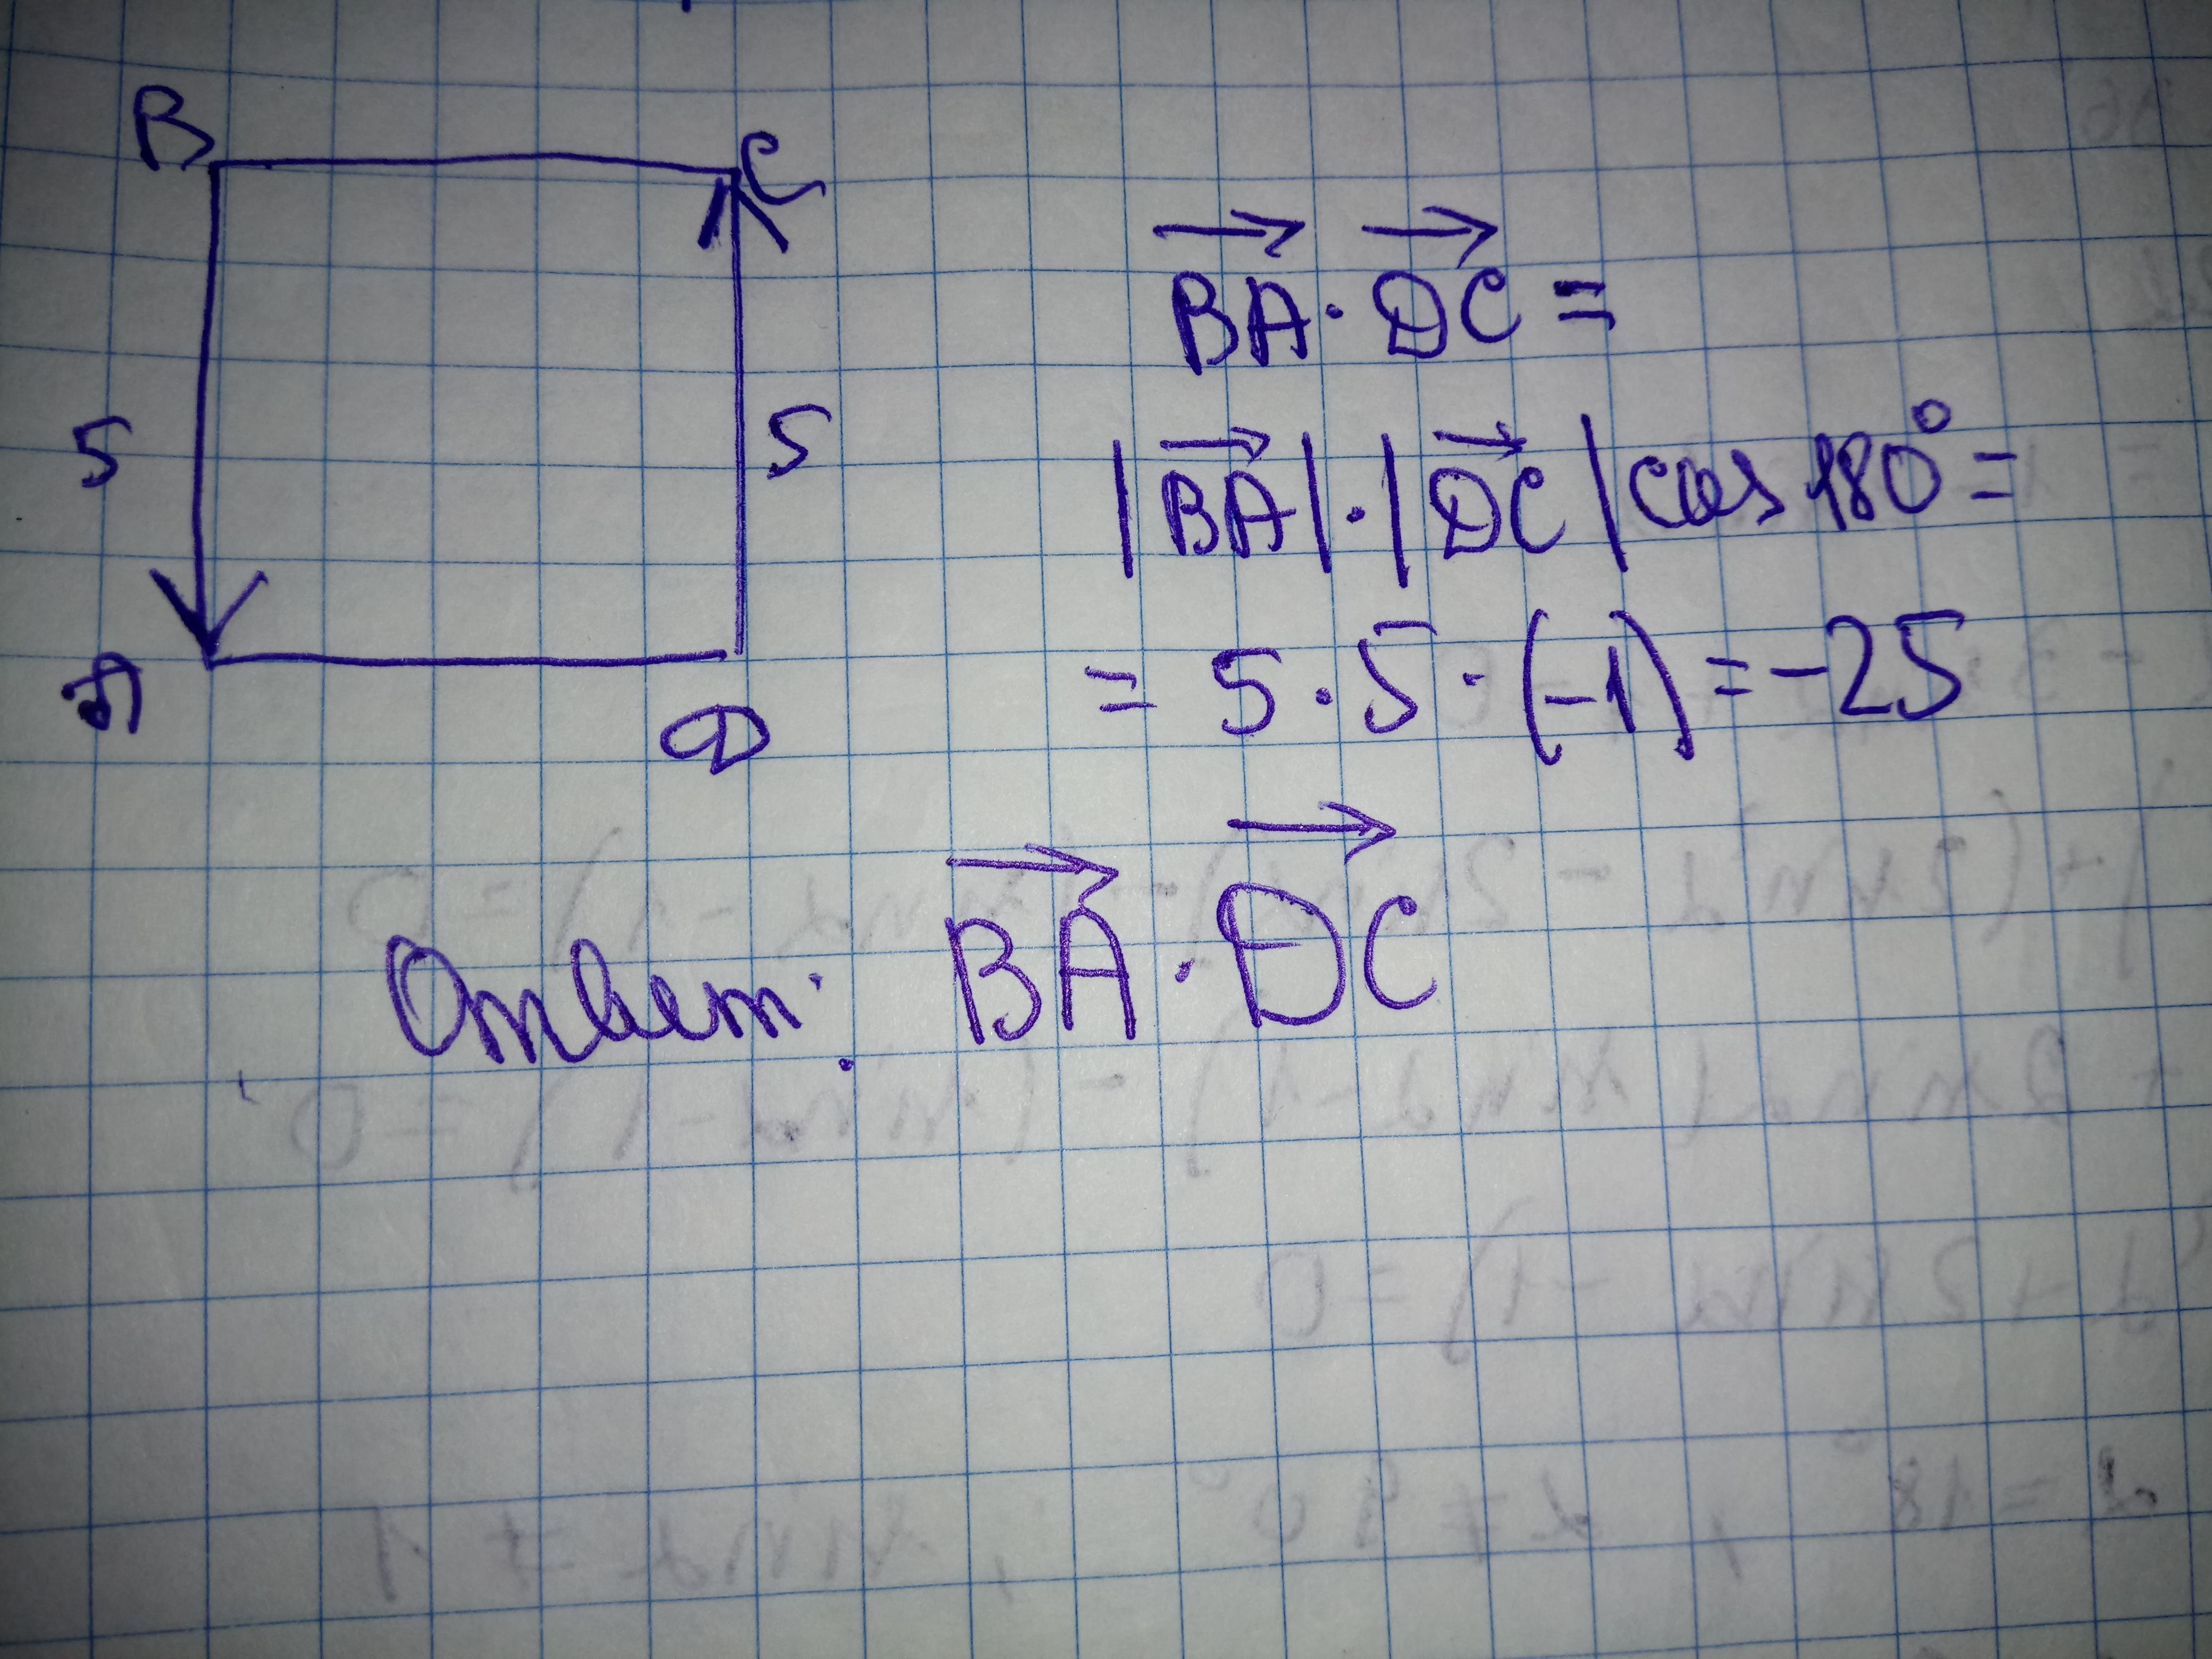 B
C
5
5
A
D
BA · DC =
|BA| · |DC| cos 180° =
= 5 · 5 · (-1) = -25
Ответ: BA · DC